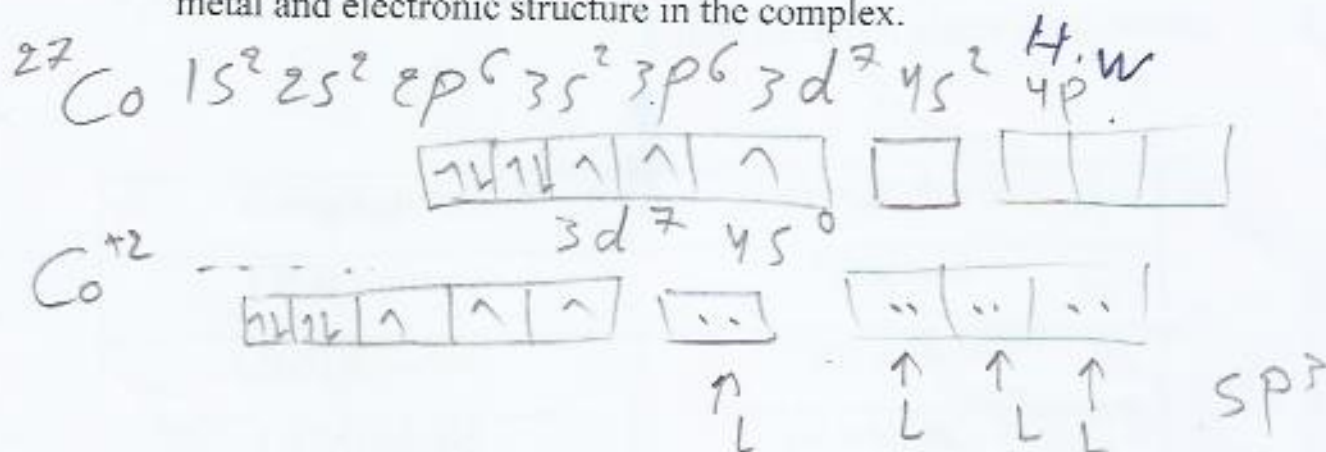 metal and electronic structure in the complex.
H.W
²⁷Co 1s² 2s² 2p⁶ 3s² 3p⁶ 3d⁷ 4s² 4p
3d⁷ 4s⁰
Co⁺²
L L L L
sp³